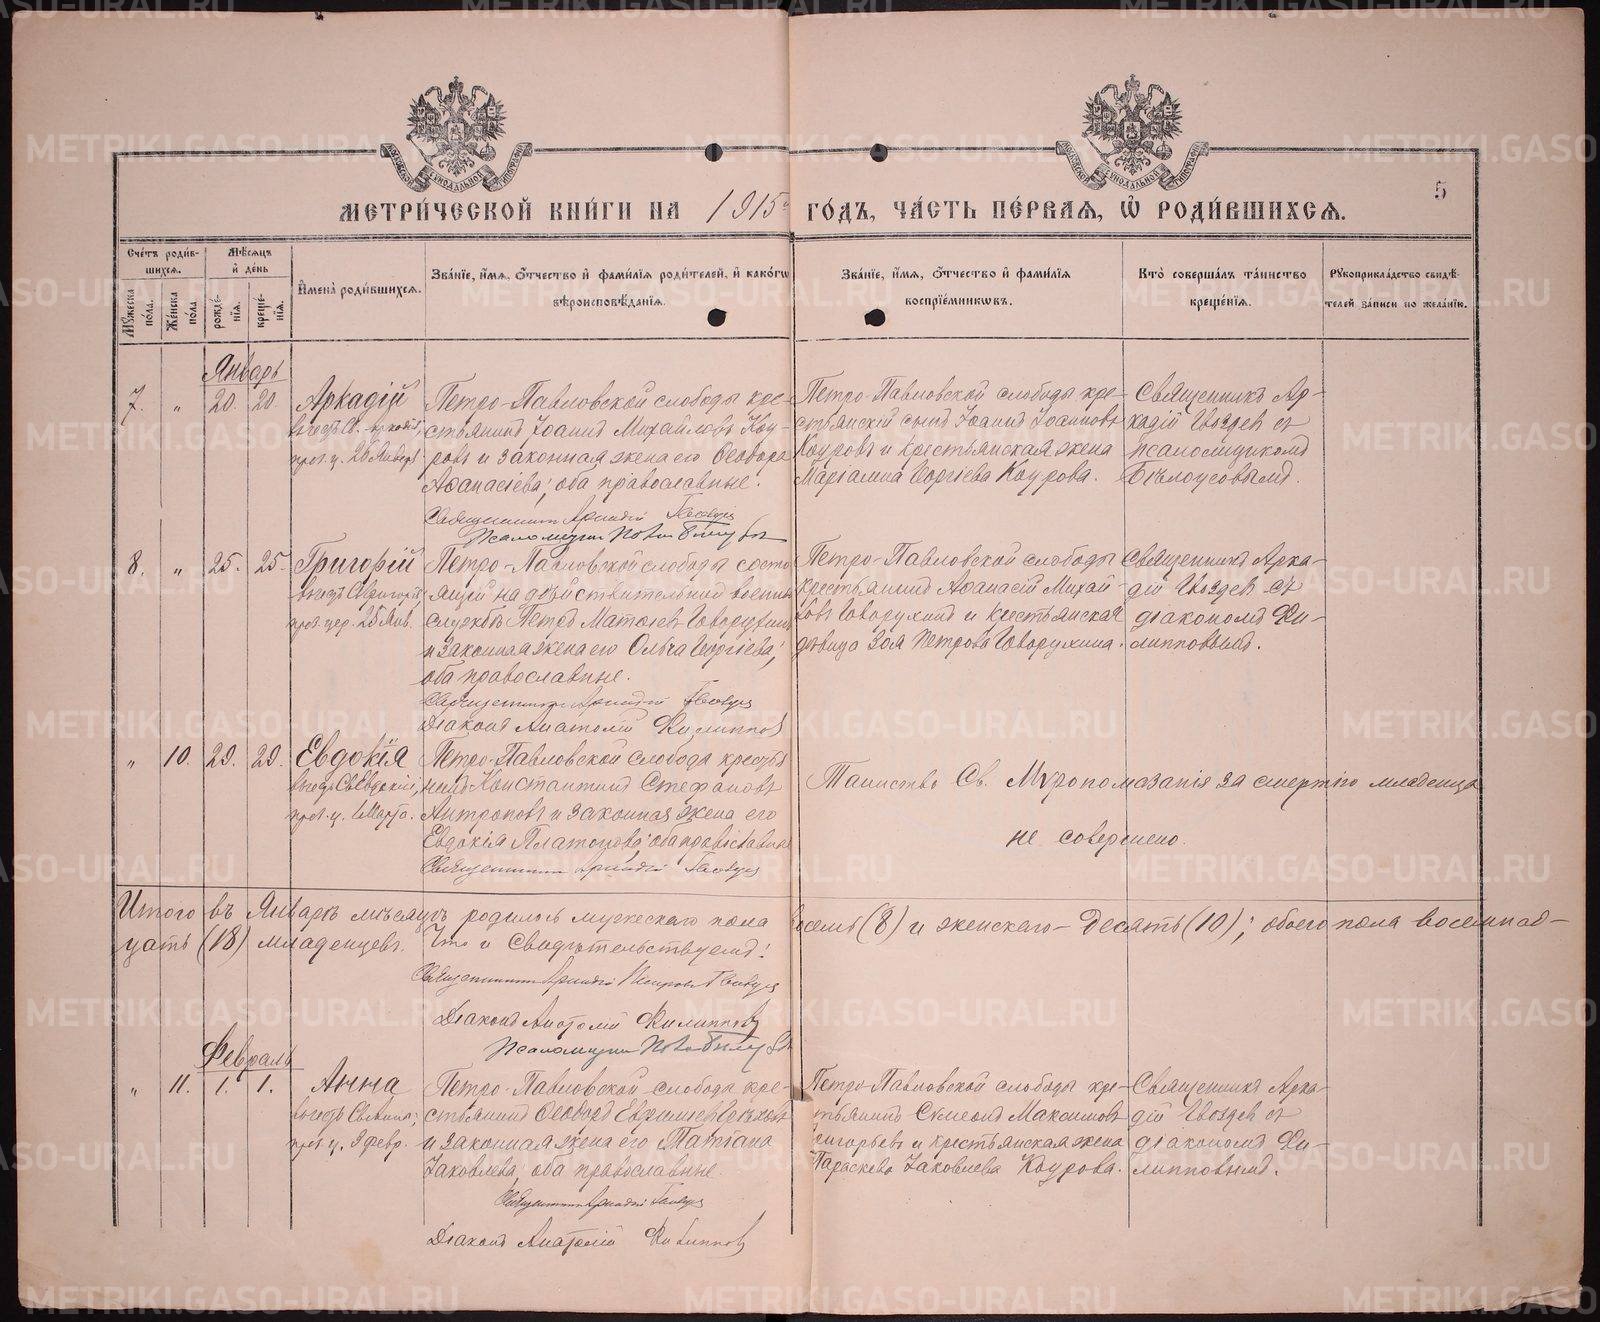 МЕТРИ́ЧЕСКОЙ КНИ́ГИ НА 1915 ГО́ДЪ, ЧА́СТЬ ПЕ́РВАЯ, Ѡ҆ РОДИ́ВШИХСЯ.
5
Сче́тъ роди́вшихся.
Мѣ́сяцъ и҆ де́нь
Мꙋ́жеска по́ла.
Же́нска по́ла
рожде́нїя.
креще́нїя.
И҆мена̀ роди́вшихся.
Зва́нїе, и҆́мя, ѻ҆́тчество и҆ фами́лїя роди́телей, и҆ како́гѡ
вѣроисповѣ́данїя.
Зва́нїе, и҆́мя, ѻ҆́тчество и҆ фами́лїя
воспрїе́мникѡвъ.
Кто̀ соверша́лъ та́инство
креще́нїя.
Рꙋкоприкла́дство свидѣ́-
телей за́писи по жела́нїю.
Январь
7. „ 20. 20. Аркадій
прав. ц. 26 Января
Петро-Павловской слободы кре-
стьянинъ Іоаннъ Михайловъ Коу-
ровъ и законная жена его Ѳеодора
Аѳанасіева; оба православные.
Священникъ Аркадій Гвоздев
Петро-Павловской слободы кре-
стьянскій сынъ Іоаннъ Іоанновъ
Коуровъ и крестьянская жена
Маріамна Георгіева Коурова.
Священникъ Ар-
кадій Гвоздевъ съ
псаломщикомъ
Бѣлоусовымъ.
8. „ 25. 25. Григорій
прав. цер. 25 Янв.
Петро-Павловской слободы состо
ящій на дѣйствительной военной
службѣ Петръ Матѳіевъ Говорухинъ
и законная жена его Ольга Георгіева;
оба православные.
Священникъ Аркадій Гвоздев
Діаконъ Анатолій Филиппов
Петро-Павловской слободы
крестьянинъ Аѳанасій Михай-
ловъ Говорухинъ и крестьянская
вдовица Зоя Петрова Говорухина.
Священникъ Арка-
дій Гвоздевъ съ
діакономъ Фи-
липповымъ.
„ 10. 29. 29. Евдокія
прав. ц. 1 Марта.
Петро-Павловской слободы крестья
нинъ Константинъ Стефановъ
Антроповъ и законная жена его
Евдокія Платонова; оба православные
Священникъ Аркадій Гвоздев
Таинство Св. Мѵропомазанія за смертію младенца
не совершено.
Итого въ Январѣ мѣсяцѣ родилось мужескаго пола восемь (8) и женскаго – десять (10); обоего пола восемнад-
цать (18) младенцевъ. Что и свидѣтельствуемъ:
Священникъ Аркадій Петровъ Гвоздев
Діаконъ Анатолій Филиппов
Февраль
„ 11. 1. 1. Анна
прав. ц. 3 февр.
Петро-Павловской слободы кре-
стьянинъ Ѳеодоръ
и законная жена его Татіана
Іаковлева; оба православные.
Священникъ Аркадій Гвоздев
Діаконъ Анатолій Филиппов
Петро-Павловской слободы кре-
стьянинъ Сѵмеонъ Максимовъ
Григорьевъ и крестьянская жена
Параскева Іаковлева Коурова.
Священникъ Арка-
дій Гвоздевъ съ
діакономъ Фи-
липповымъ.